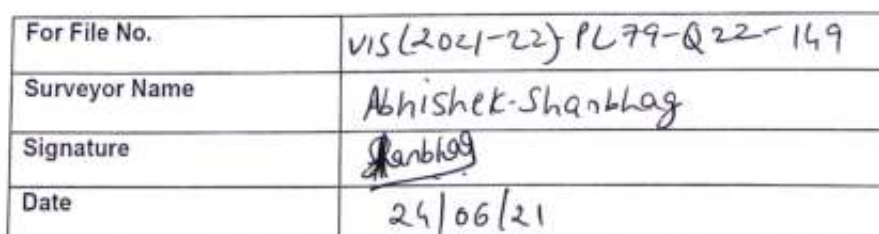 For File No. VIS(2021-22)-PL79-Q22-149
Surveyor Name Abhishek-Shanbhag
Signature Shanbhag
Date 24/06/21